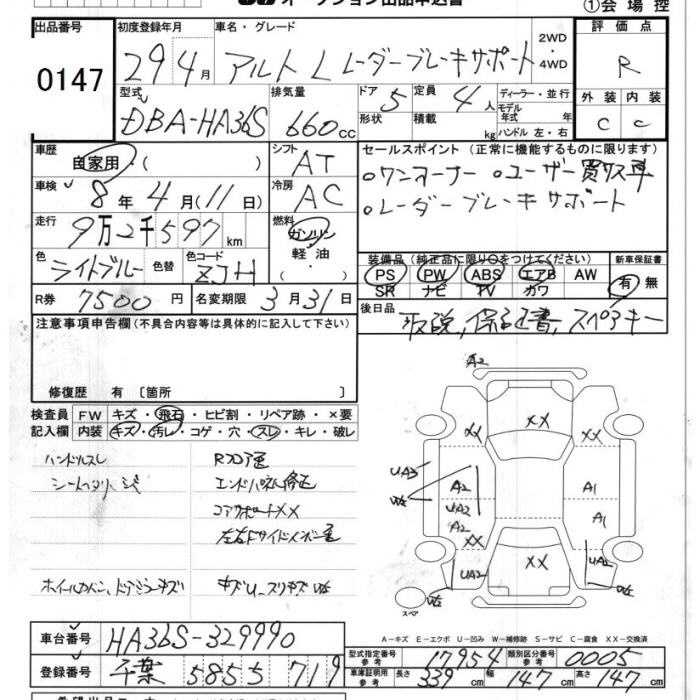 オークション出品申込書
①会場控
出品番号
0147
初度登録年月
29 4月
車名・グレード
アルト L レーダーブレーキサポート
2WD
・
4WD
評価点
R
型式
DBA-HA36S
排気量
660cc
ドア
5
形状
定員
4人
積載
kg
ディーラー・並行
モデル
年式 年
ハンドル 左・右
外装
C
内装
C
車歴
自家用・( )
シフト
AT
セールスポイント (正常に機能するものに限ります)
○ワンオーナー ○ユーザー買取車
○レーダーブレーキサポート
車検
8年4月(11日)
冷房
AC
走行
9万2千597km
燃料
ガソリン
軽油
・( )
色
ライトブルー
色替
色コード
ZJH
装備品 (純正品に限り○をつけてください)
PS PW ABS エアB AW
SR ナビ TV カワ
新車保証書
有 無
R券
7500円
名変期限
3月31日
後日品
取説, 保証書, スペアキー
注意事項申告欄 (不具合内容等は具体的に記入して下さい)
修復歴 有 〔箇所 〕
検査員
記入欄
FW キズ・飛石・ヒビ割・リペア跡・×要
内装 キズ・汚レ・コゲ・穴・スレ・キレ・破レ
ハンドルスレ
Rフロア歪
エンドパネル修正
コアサポートXX
左右Fサイドメンバー歪
A2
XX
XX
XX
UA3
A2
UA2
A2
A1
A1
XX
XX
UA2
UA2
スペア
A-キズ E-エクボ U-凹み W-補修跡 S-サビ C-腐食 XX-交換済
車台番号
HA36S-329990
登録番号
千葉 5855 719
型式指定番号
参考
17954
類別区分番号
参考
0005
車庫証明用
参考
長さ
339cm
幅
147cm
高さ
147cm